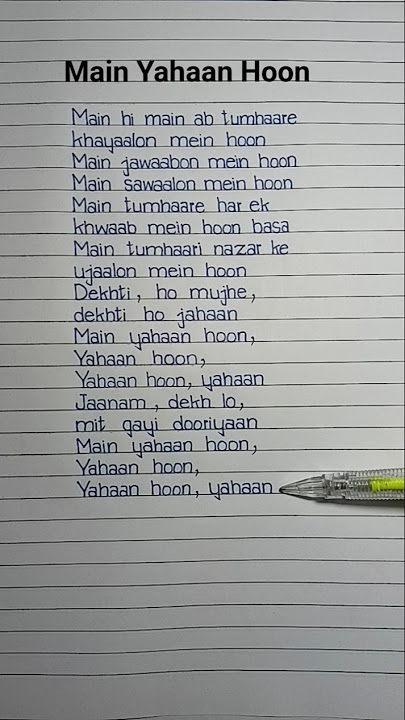 Main Yahaan Hoon
Main hi main ab tumhaare
khayaalon mein hoon
Main jawaabon mein hoon
Main sawaalon mein hoon
Main tumhaare har ek
khwaab mein hoon basa
Main tumhaari nazar ke
ujaalon mein hoon
Dekhti, ho mujhe,
dekhti ho jahaan
Main yahaan hoon,
Yahaan hoon,
Yahaan hoon, yahaan
Jaanam, dekh lo,
mit gayi dooriyaan
Main yahaan hoon,
Yahaan hoon,
Yahaan hoon, yahaan